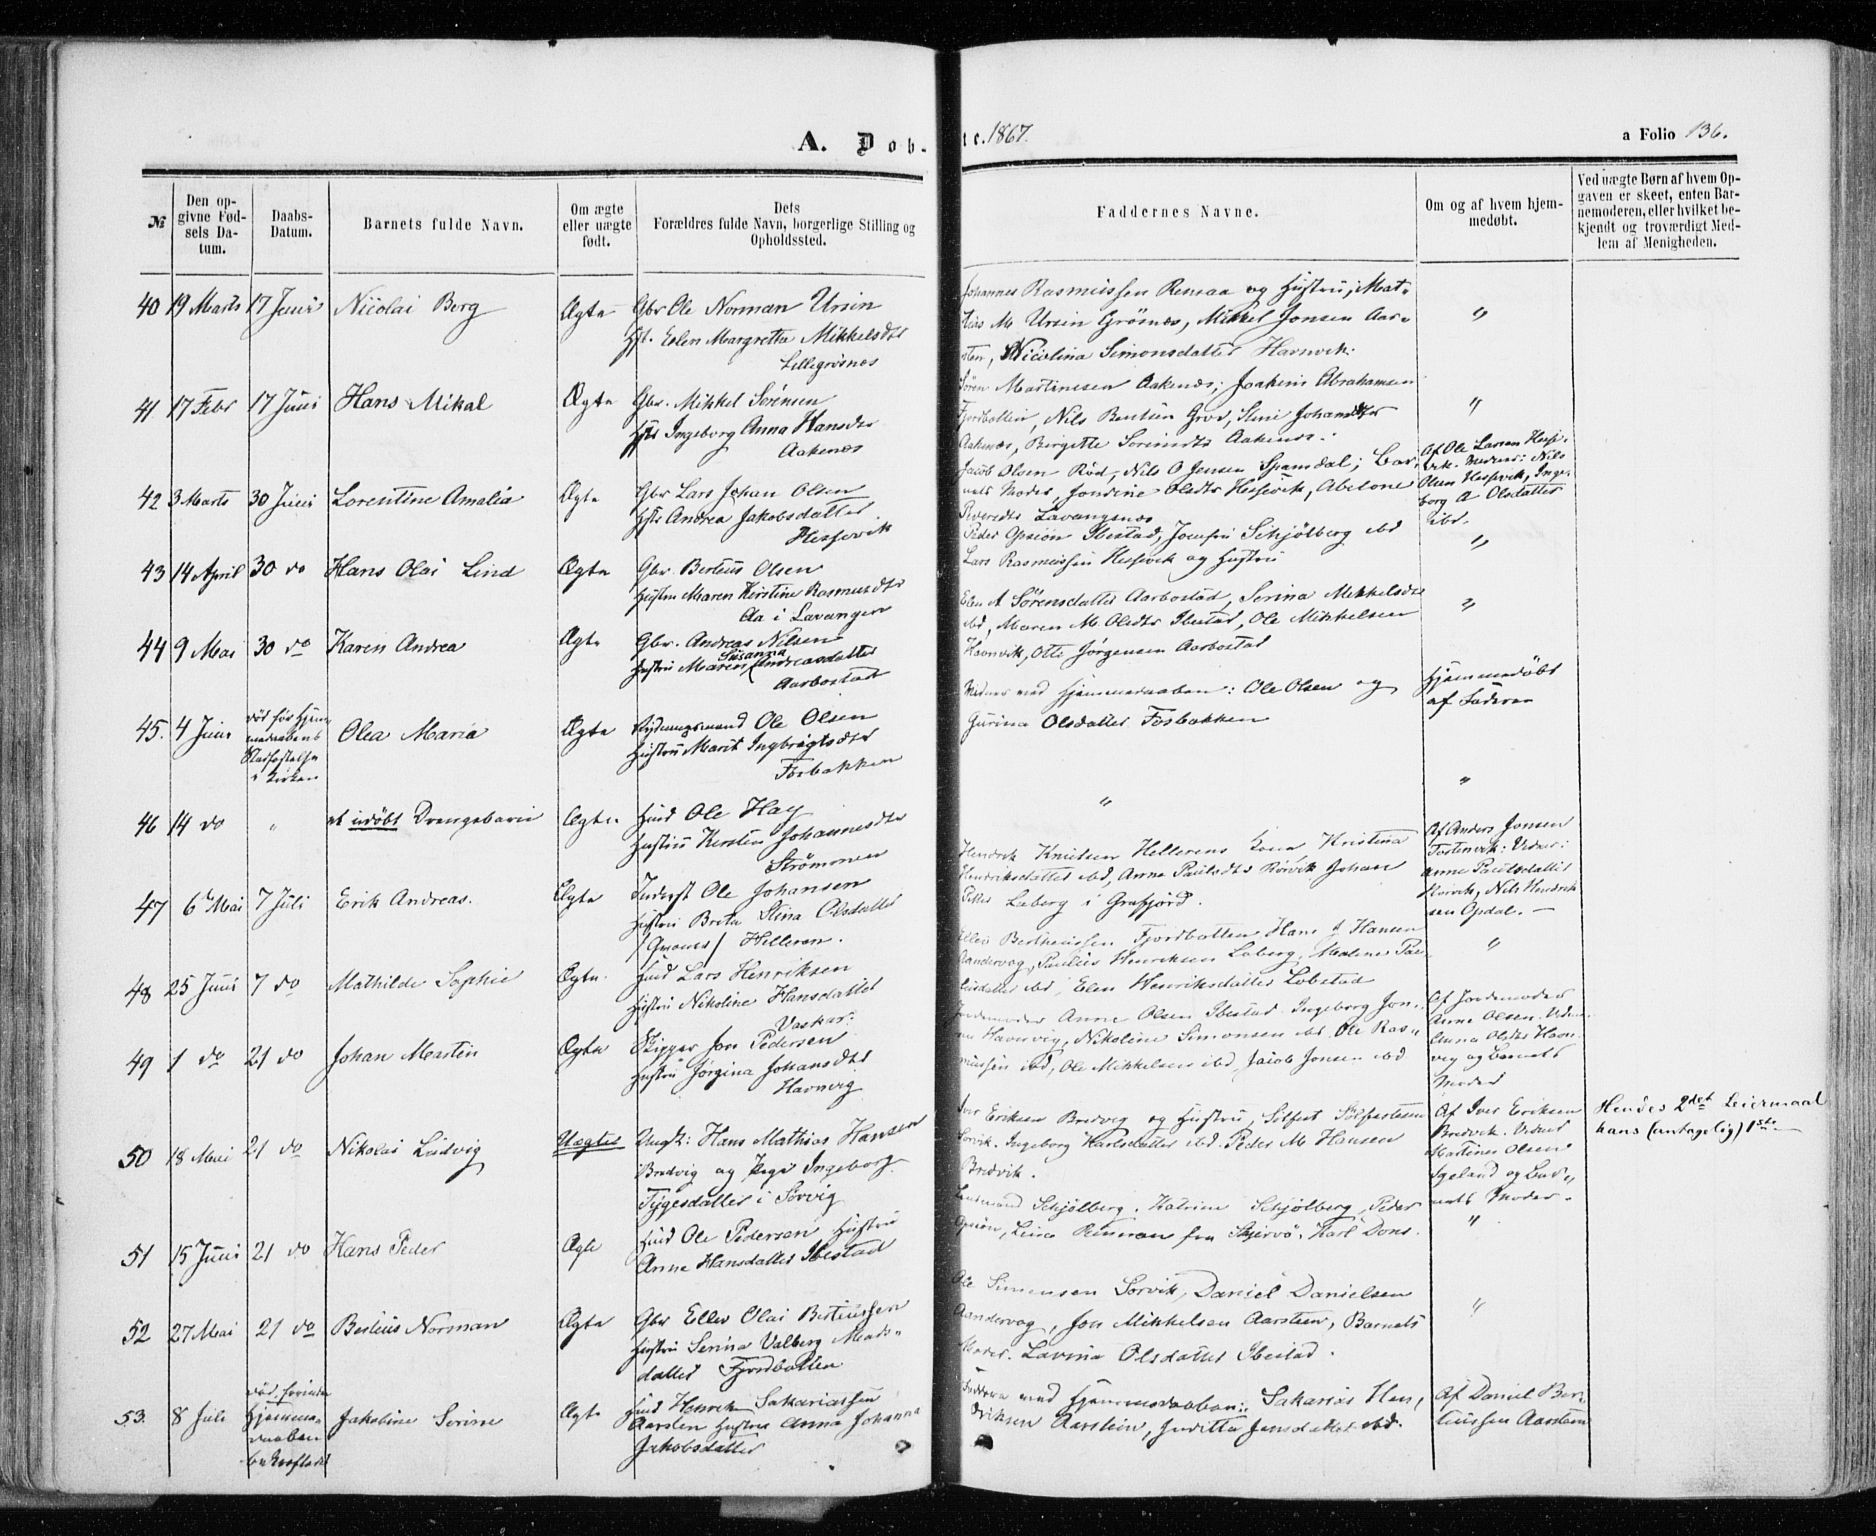 A. Døb-
te. 1867.
a Folio 136.
№
Den op-
givne Fød-
sels Da-
tum.
Daabs-
Datum.
Barnets fulde Navn.
Om ægte
eller uægte
født.
Dets
Forældres fulde Navn, borgerlige Stilling og
Opholdssted.
Faddernes Navne.
Om og af hvem hjem-
medøbt.
Ved uægte Børn af hvem Op-
gaven er skeet, enten Bar-
nemoderen, eller hvilket be-
kjendt og troværdigt Med-
lem af Menigheden.
40 19 Marts 17 Juni Nicolai Berg Ægte Gbr Ole Norman Ursin
Hst. Elen Margretta Mikkelsdtr
Lillegrøsnes
Johannes Rasmussen Remaa og Hustru, Mat-
tias M Ursin Grøsnes, Mikkel Jonsen Aar-
sten, Nicolina Simonsdatter Havnvik. "
41 17 Febr 17 Juni Hans Mikal Ægte Gbr. Mikkel Sørensen
Hstr Ingeborg Anna Hansdtr
Aakenes
Søren Martinssen Aakenes, Joakim Abrahamsen
Fjordbotten, Nils Bentsen Grov, Johansdtr
Aakenes, Bergitte Sørensdtr Aakenes. "
42 3 Marts 30 Juni Lorentine Amalia Ægte Gbr Lars Johan Olsen
Hstr Andrea Jakobsdatter
Hessevik
Jacob Olsen Rød, Nils O Jensen Spansdal; Bar-
nets Moder, Jondine Olsdtr Hessevik, Abelone
Peversdtr Lavangsnes
Af Ole Larsen Hesse-
vik. Vidner: Nils
Olsen Hessevik, Inge-
borg A Olsdatter
ibd.
43 14 April 30 do Hans Olai Lind Ægte Gbr. Berteus Olsen
Hustru Maren Kirstine Rasmusdtr
Aa i Lavangen
Peder Opsion Ibestad, Josefin Schjølberg ibd
Lars Rasmussen Hessevik og Hustru "
44 9 Mai 30 do Karen Andrea Ægte Gbr. Andreas Nilsen
Susanna
Hustru Maren Andreasdatter
Aarbostad
Elen A Sørensdatter Aarbostad, Serina Mikkelsdtr
ibd, Maren M Olsdtr Ibestad, Ole Mikkelsen
Havnvik, Otto Jørgensen Aarbostad "
45. 4 Juni død før Hjem-
medaabens
Stadfæstelse
i Kirken
Olea Maria Ægte Rydningsmand Ole Olsen
Hustru Marit Ingbrigtsdtr
Fosbakken
Vidner ved Hjemmedaaben: Ole Olsen og
Gurina Olsdatter Fosbakken
Hjemmedøbt
af Faderen
46 14 do " et udøbt Drengebarn Ægte Husd Ole Hay
Hustru Kersten Johannesdtr
Strømmen
" "
47 6 Mai 7 Juli Erik Andreas. Ægte Inderst Ole Johansen
Hustru Brita Stina Olsdatter
/Qvæner/ Helleren.
Hendrik Knutsen Hellerens Kona Kristina
Hendriksdatter ibd, Anne Paulsdtr Rørvik Johan
Peter Laberg i Gratfjord.
Af Anders Jonsen
Tostenvik: Vidner:
Anne Paulsdatter
Rørvik, Nils Hendrik-
sen Opdal. —
48 25 Juni 7 do Mathilde Sophie Ægte Husd Lars Henriksen
Hustru Nikoline Hansdatter
Vaskar.
Eller Bertheussen Fjordbotten Hans A Hansen
Aandervag, Paulus Henriksen Laberg, Malene Pau-
lusdatter ibd, Elen Henriksdatter Løbstad "
49 1 do 21 do Johan Martin Ægte Skipper Jon Pedersen
Hustru Jørgina Johansdtr
Havnvig
Jordemoder Anne Olsen Ibestad. Ingeborg Jon-
sen Havnvig, Nikoline Simonsen ibd. Ole Ras-
mussen ibd, Ole Mikkelsen ibd, Jacob Jonsen ibd
Af Jordemoder
Anne Olsen. Vidner
Anna Olsdtr Havn-
vig og Barnets
Moder
50 18 Mai 21 do Nikolai Ludvig Uægte Ungk: Hans Mathias Hansen
Bredvig og Pige Ingeborg
Tygesdatter i Sørvig
Iver Eriksen Bredvig og Hustru, Solfest Solfestesen
Sørvik. Ingeborg Karlsdatter ibd. Peder M Hansen
Bredvik.
Af Iver Eriksen
Bredvik. Vidner
Martines Olsen
Igeland og Bar-
nets Moder.
Hendes 2det Leiermaal
hans (antagelig) 1ste
51 15 Juni 21 do Hans Peder Ægte Husd Ole Pedersen Hustru
Anne Hansdatter Ibestad
Lensmand Schjølberg. Katrine Schjølberg, Peder
Opsion, Lina fra Skjervø. Karl Dons. "
52 27 Mai 21 do Berteus Norman Ægte Gbr Eller Olai Berteussen
Hustru Serina Valberg Mads-
datter Fjordbotten
Ole Simensen Sørvik, Daniel Danielsen
Aandervag, Jon Mikkelsen Aarsteen, Barnets
Moder. Lavina Olsdatter Ibestad. "
53. 8 Juli død, forinden
Hjemme-
daaben
bekræftedes
Jakobine Serine Ægte Husd Henrik Sakariassen
Aarsten Hustru Anna Johanna
Jakobsdatter
Faddere ved Hjemmedaaben: Sakarias Hen-
driksen Aarsteen, Juditta Jensdatter ibd.
Af Daniel Ber-
teussen Aarsteen